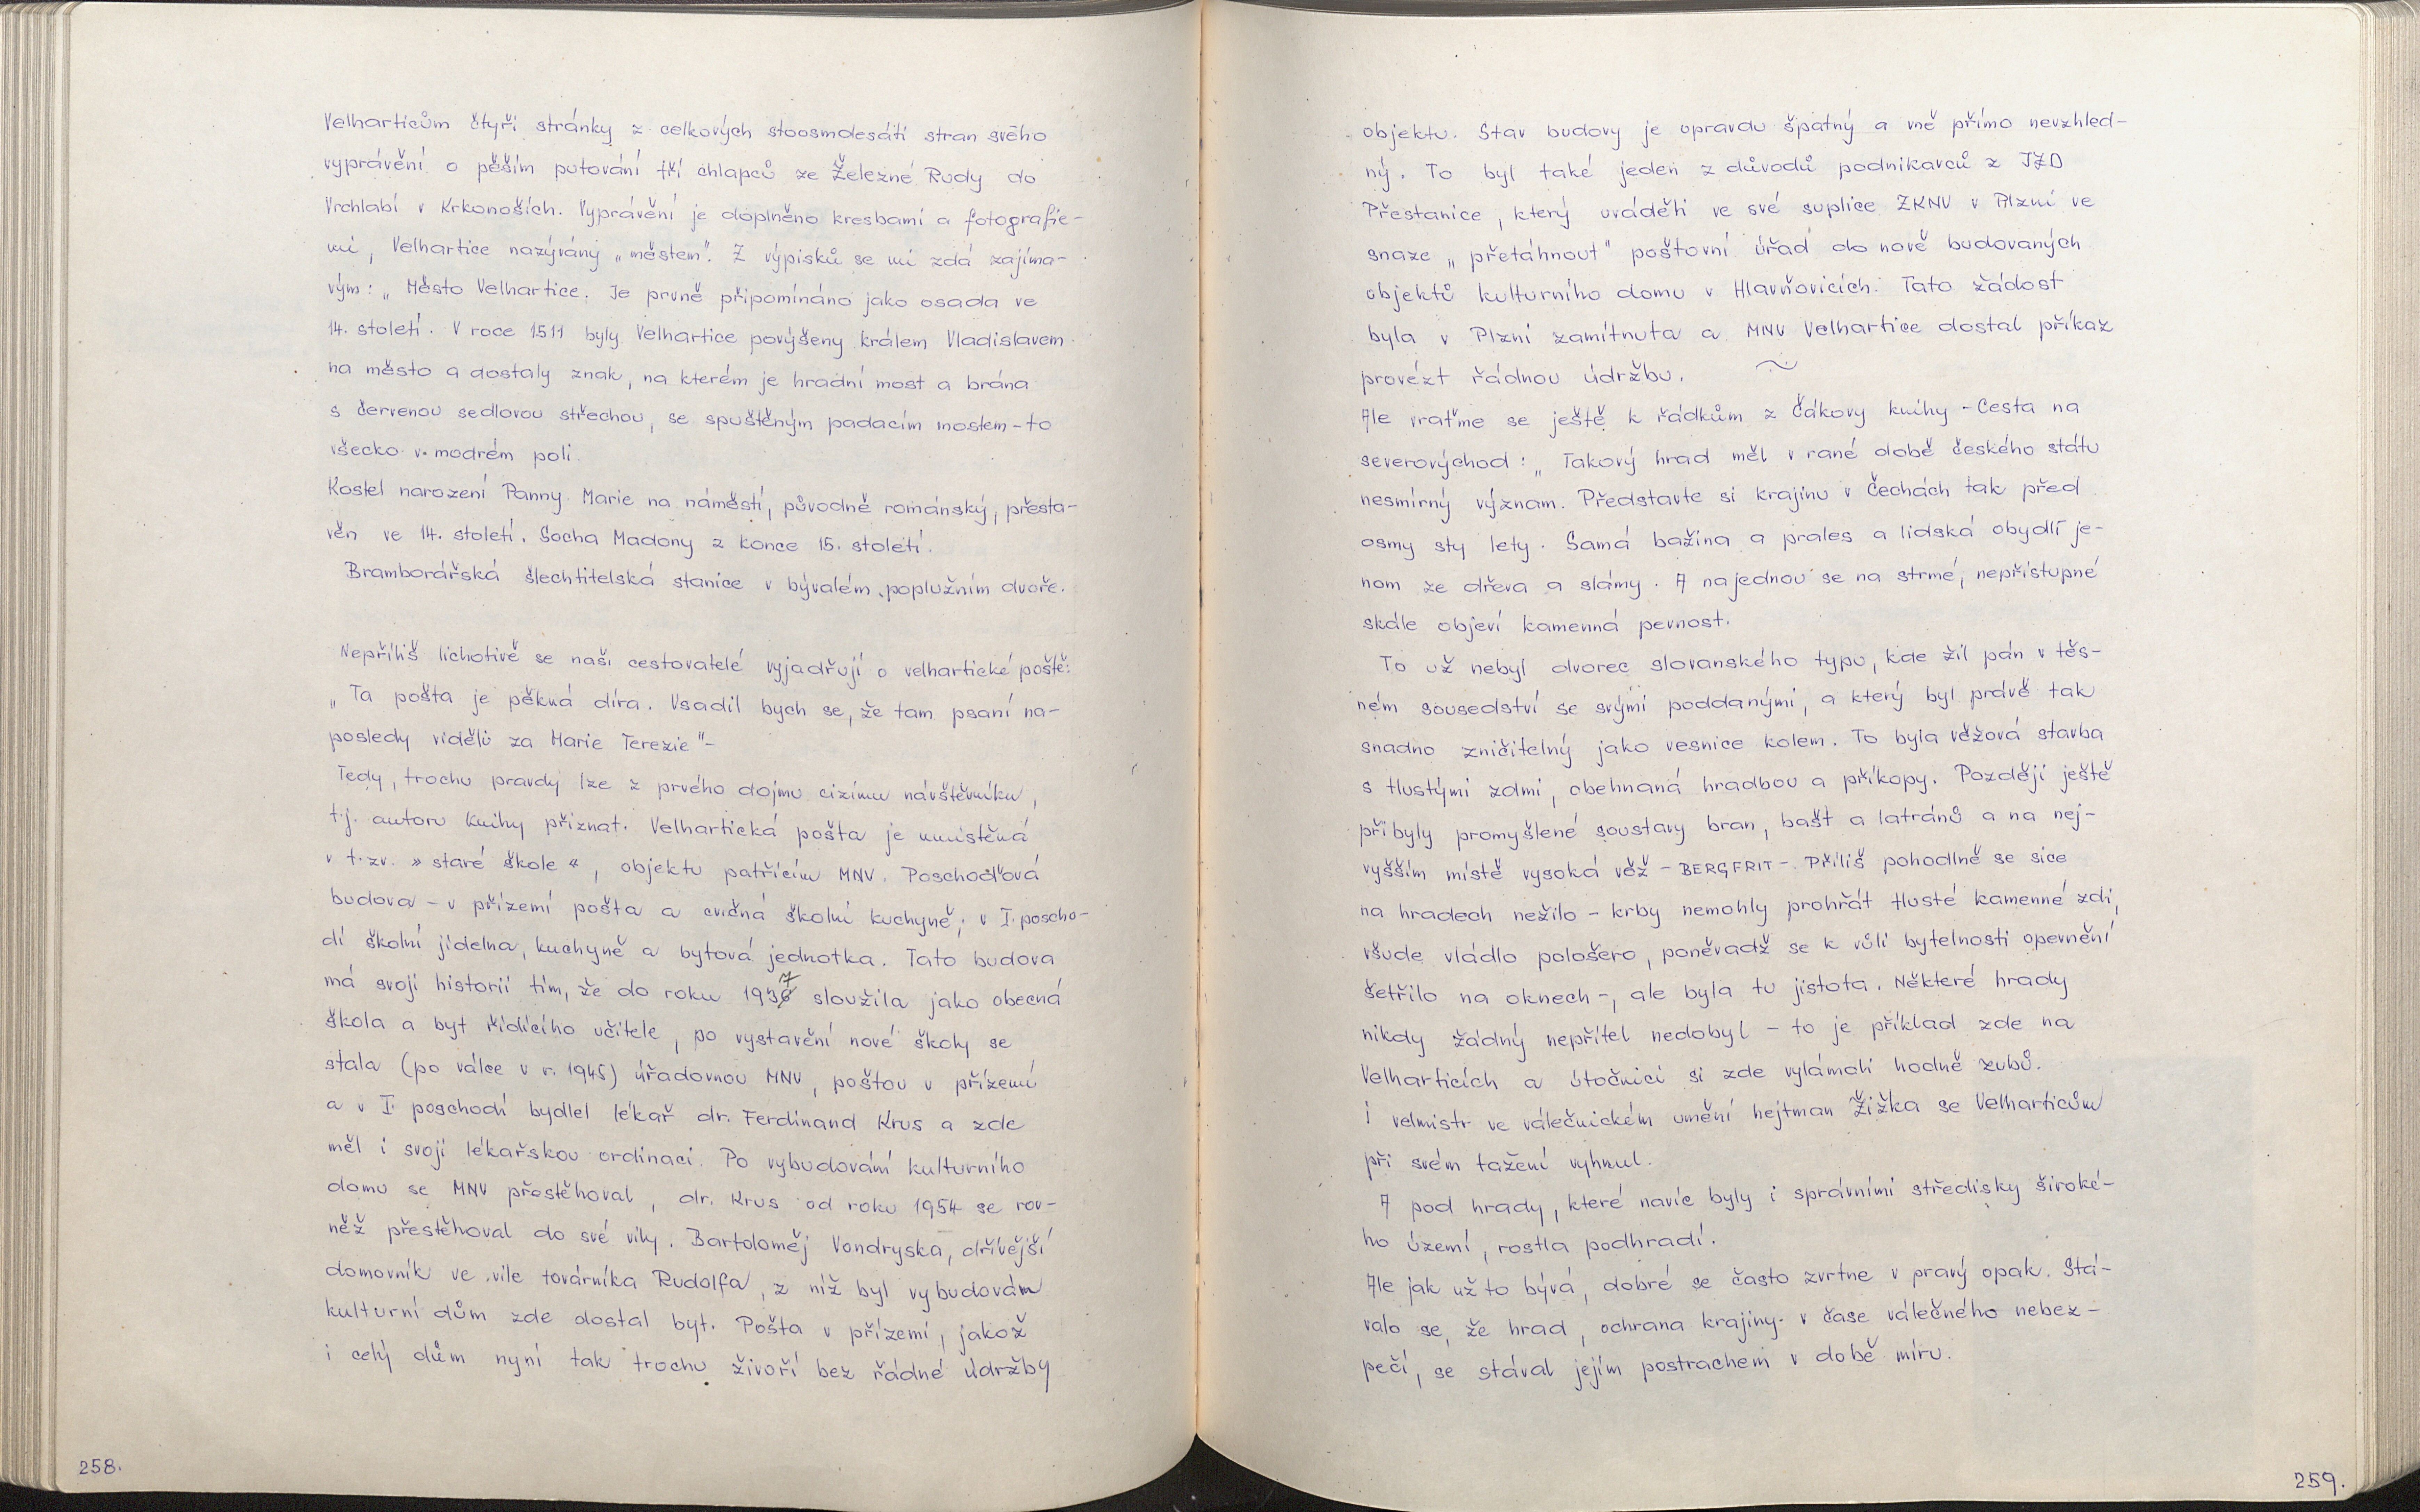 Velharticům čtyři stránky z celkových stoosmdesáti stran svého
vyprávění o pěším putování tří chlapců ze Železné Rudy do
Vrchlabí v Krkonoších. Vyprávění je doplněno kresbami a fotografie-
mi, Velhartice nazývány „městem". Z výpisků se mi zdá zajíma-
vým: „Město Velhartice. Je prvně připomínáno jako osada ve
14. století. V roce 1511 byly Velhartice povýšeny králem Vladislavem
na město a dostaly znak, na kterém je hradní most a brána
s červenou sedlovou střechou, se spuštěným padacím mostem - to
všecko v modrém poli.
Kostel narození Panny Marie na náměstí, původně románský, přesta-
věn ve 14. století. Socha Madony z konce 15. století.
Bramborářská šlechtitelská stanice v bývalém poplužním dvoře.
Nepříliš lichotivě se naši cestovatelé vyjadřují o velhartické poště:
„Ta pošta je pěkná díra. Vsadil bych se, že tam psaní na-
posledy viděli za Marie Terezie" -
Tedy, trochu pravdy lze z prvého dojmu cizímu návštěvníku,
t.j. autoru knihy přiznat. Velhartická pošta je umístěná
v t.zv. » staré škole «, objektu patřícím MNV. Poschoďová
budova - v přízemí pošta a cvičná školní kuchyně; v I. poscho-
dí školní jídelna, kuchyně a bytová jednotka. Tato budova
má svoji historii tím, že do roku 1937 sloužila jako obecná
škola a byt řídícího učitele, po vystavění nové školy se
stala (po válce v r. 1945) úřadovnou MNV, poštou v přízemí
a v I. poschodí bydlel lékař dr. Ferdinand Krus a zde
měl i svoji lékařskou ordinaci. Po vybudování kulturního
domu se MNV přestěhoval, dr. Krus od roku 1954 se rov-
něž přestěhoval do své vily. Bartoloměj Vondryska, dřívější
domovník ve vile továrníka Rudolfa, z níž byl vybudován
kulturní dům zde dostal byt. Pošta v přízemí, jakož
i celý dům nyní tak trochu živoří bez řádné údržby
258.
objektu. Stav budovy je opravdu špatný a vně přímo nevzhled-
ný. To byl také jeden z důvodů podnikavců z JZD
Přestanice, který uváděli ve své suplice ZKNV v Plzni ve
snaze „přetáhnout" poštovní úřad do nově budovaných
objektů kulturního domu v Hlavňovicích. Tato žádost
byla v Plzni zamítnuta a MNV Velhartice dostal příkaz
provézt řádnou údržbu. ~
Ale vraťme se ještě k řádkům z Čákovy knihy - Cesta na
severovýchod: „Takový hrad měl v rané době českého státu
nesmírný význam. Představte si krajinu v Čechách tak před
osmy sty lety. Samá bažina a prales a lidská obydlí je-
nom ze dřeva a slámy. A najednou se na strmé, nepřístupné
skále objeví kamenná pevnost.
To už nebyl dvorec slovanského typu, kde žil pán v těs-
ném sousedství se svými poddanými, a který byl právě tak
snadno zničitelný jako vesnice kolem. To byla věžová stavba
s tlustými zdmi, obehnaná hradbou a příkopy. Později ještě
přibyly promyšlené soustavy bran, bašt a latránů a na nej-
vyšším místě vysoká věž - BERGFRIT -. Příliš pohodlně se sice
na hradech nežilo - krby nemohly prohřát tlusté kamenné zdi,
všude vládlo pološero, poněvadž se k vůli bytelnosti opevnění
šetřilo na oknech -, ale byla tu jistota. Některé hrady
nikdy žádný nepřítel nedobyl - to je příklad zde na
Velharticích a útočníci si zde vylámali hodně zubů.
I velmistr ve válečnickém umění hejtman Žižka se Velharticům
při svém tažení vyhnul.
A pod hrady, které navíc byly i správními středisky široké-
ho území, rostla podhradí.
Ale jak už to bývá, dobré se často zvrtne v pravý opak. Stá-
valo se, že hrad, ochrana krajiny v čase válečného nebez-
pečí, se stával jejím postrachem v době míru.
259.